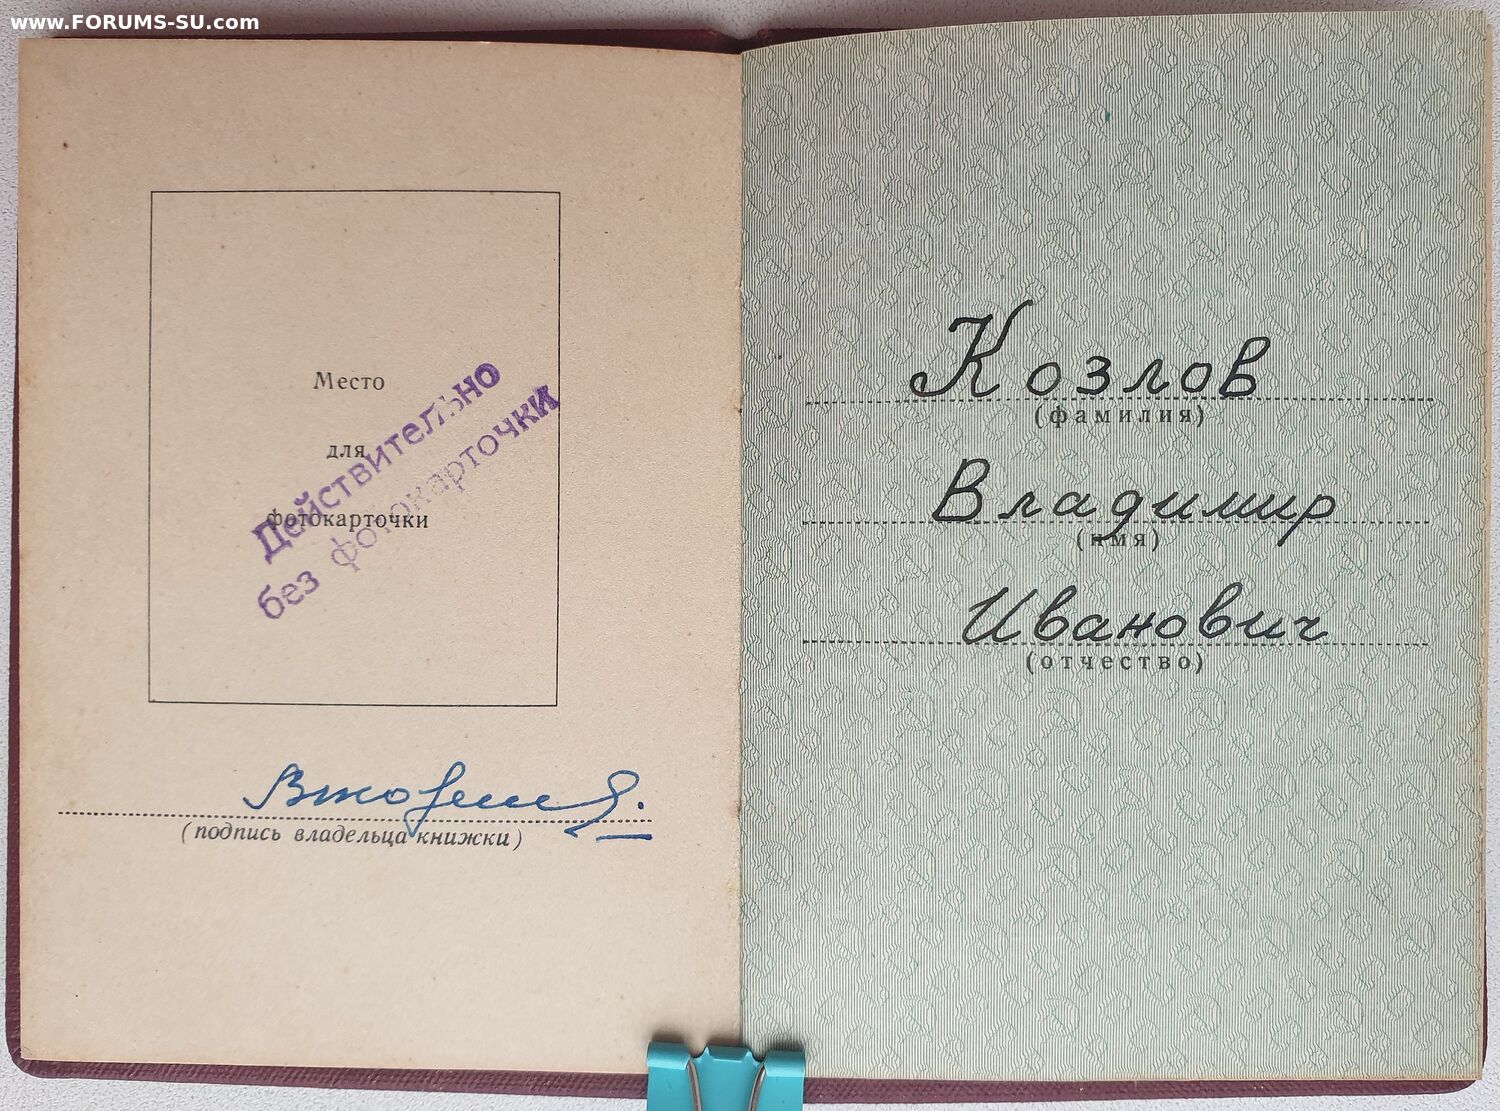 www.FORUMS-SU.com
Место
для
фотокарточки
Действительно
без фотокарточки
(подпись владельца книжки)
Козлов
(фамилия)
Владимир
(имя)
Иванович
(отчество)